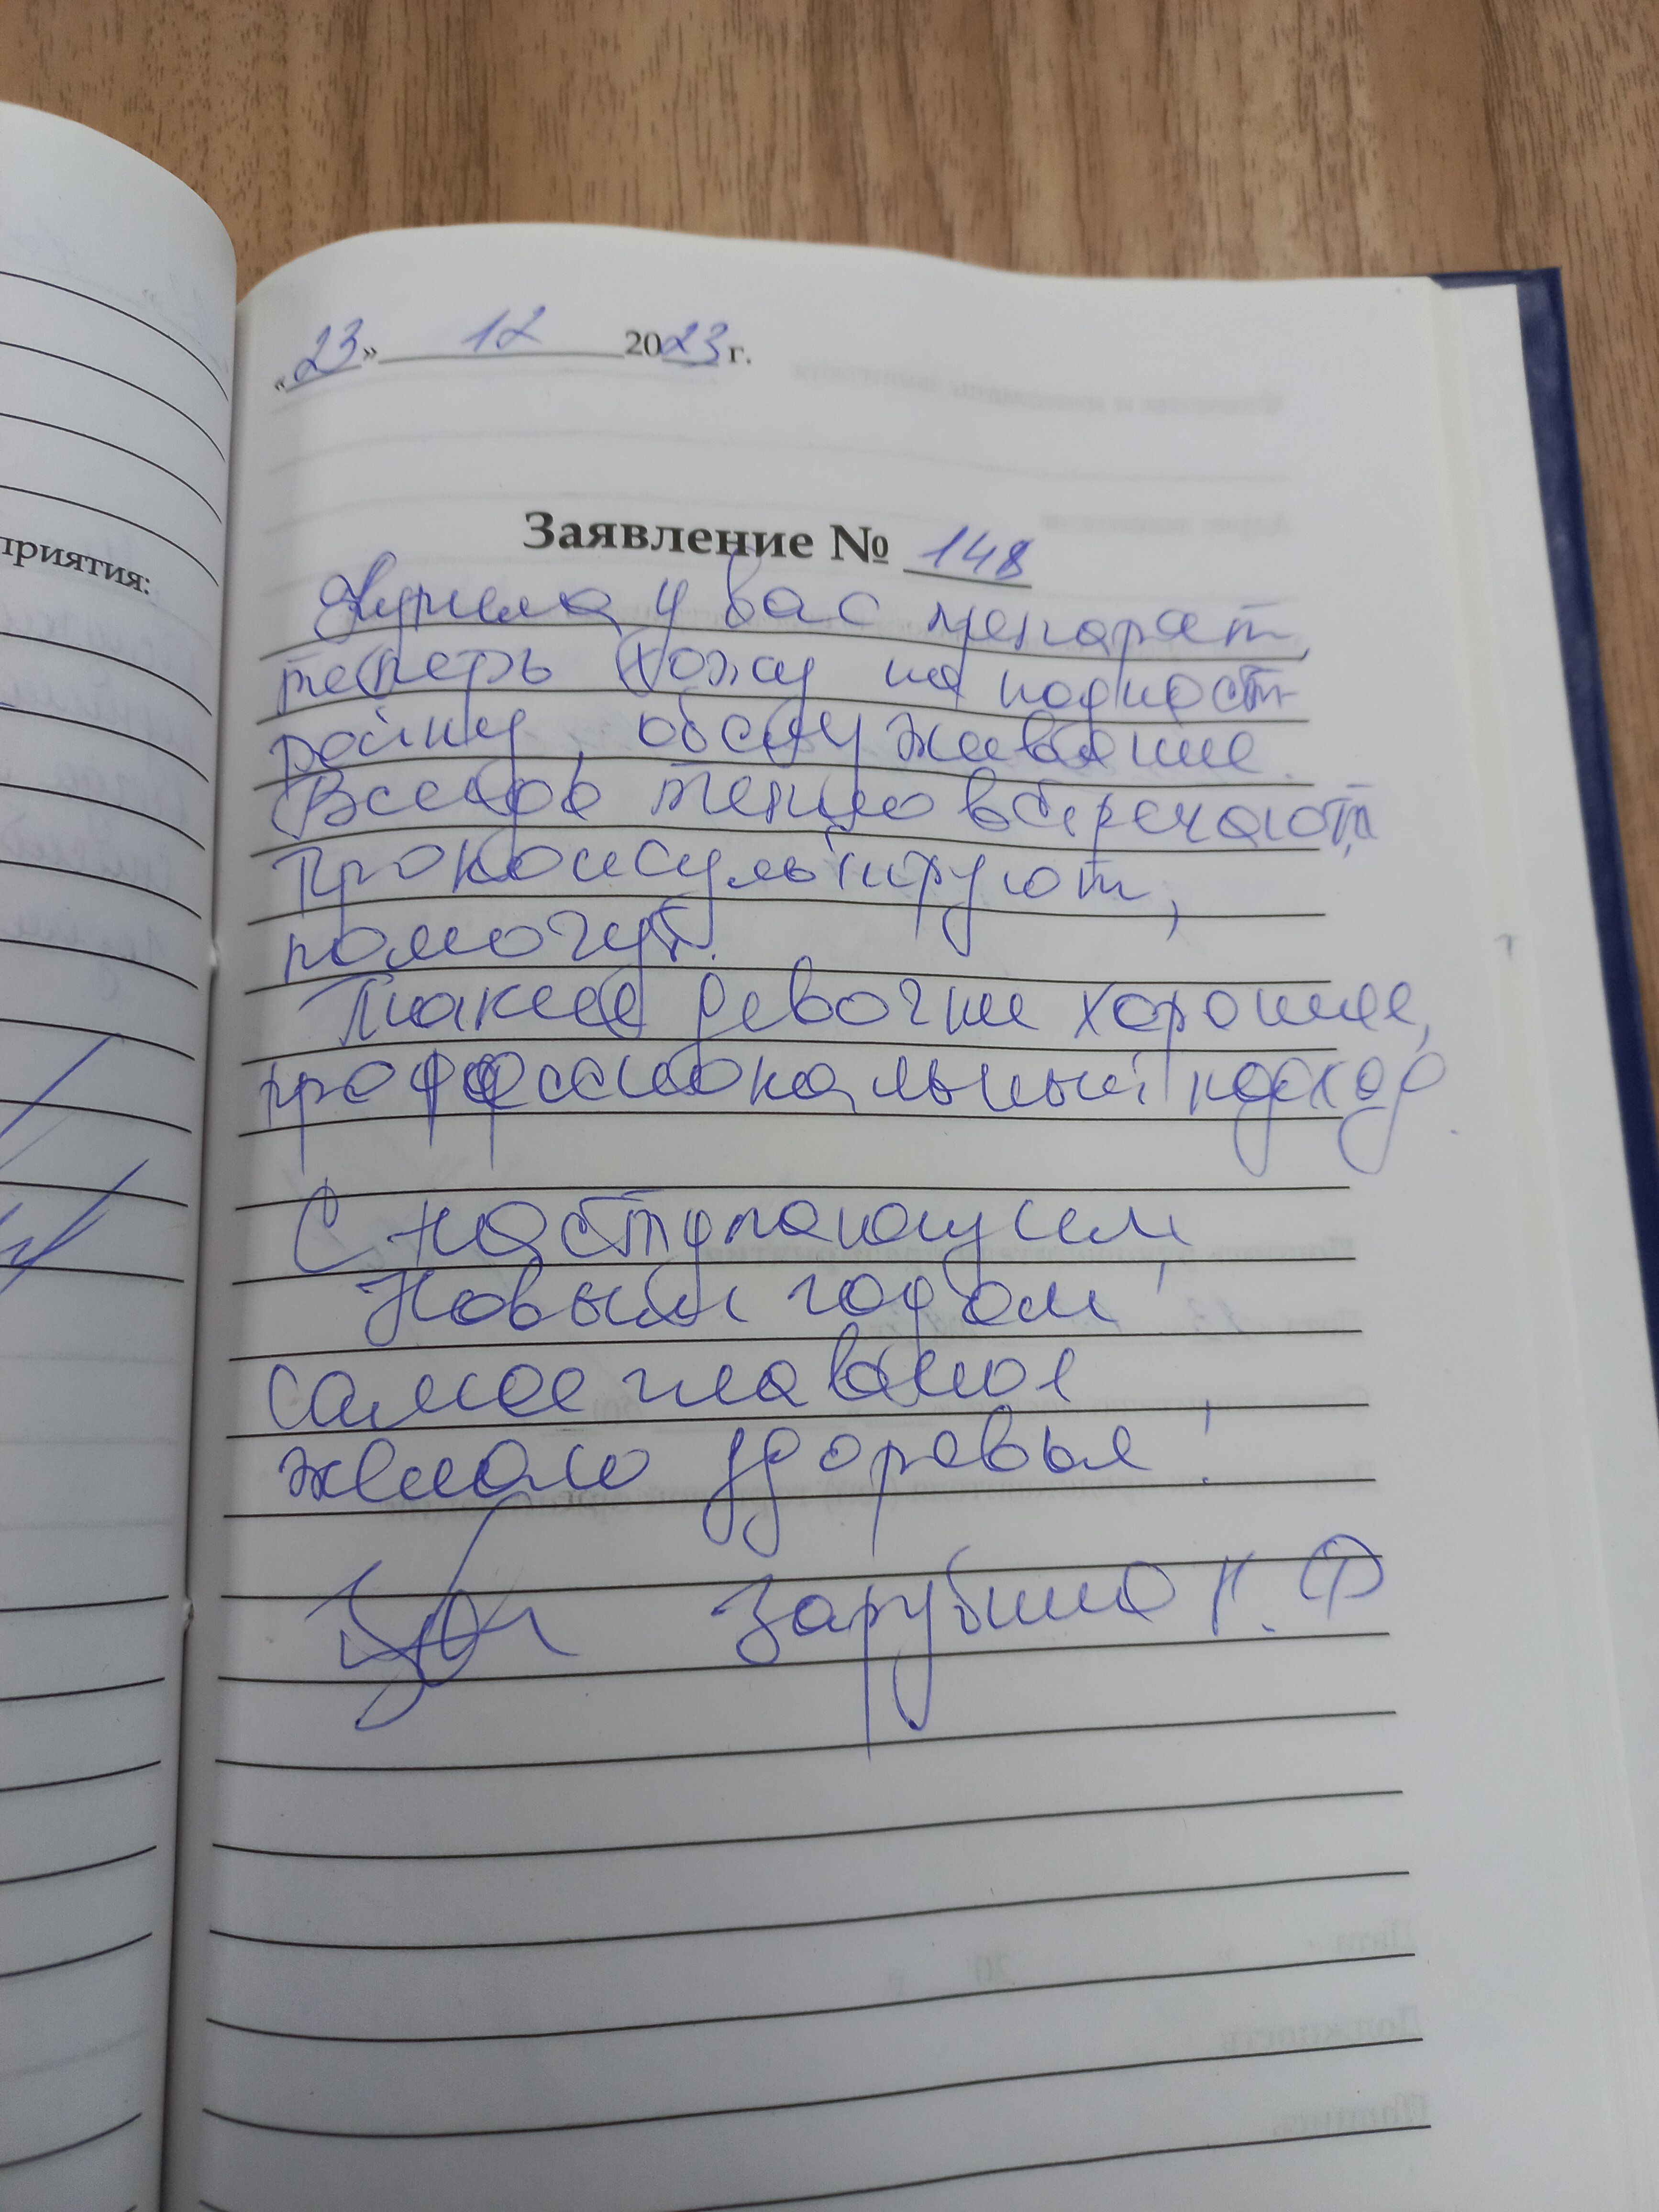 приятия:
«23» 12 2023 г.
Заявление № 148
Купила у вас препарат,
теперь хожу на подност
ройку, обслуживание.
Всегда тепло встречают,
проконсультируют,
помогут.
Такие девочки хорошие,
профессиональный подход.
С наступающим
Новым годом!
самое главное
желаю здоровья!
Зарубина Н. Ф